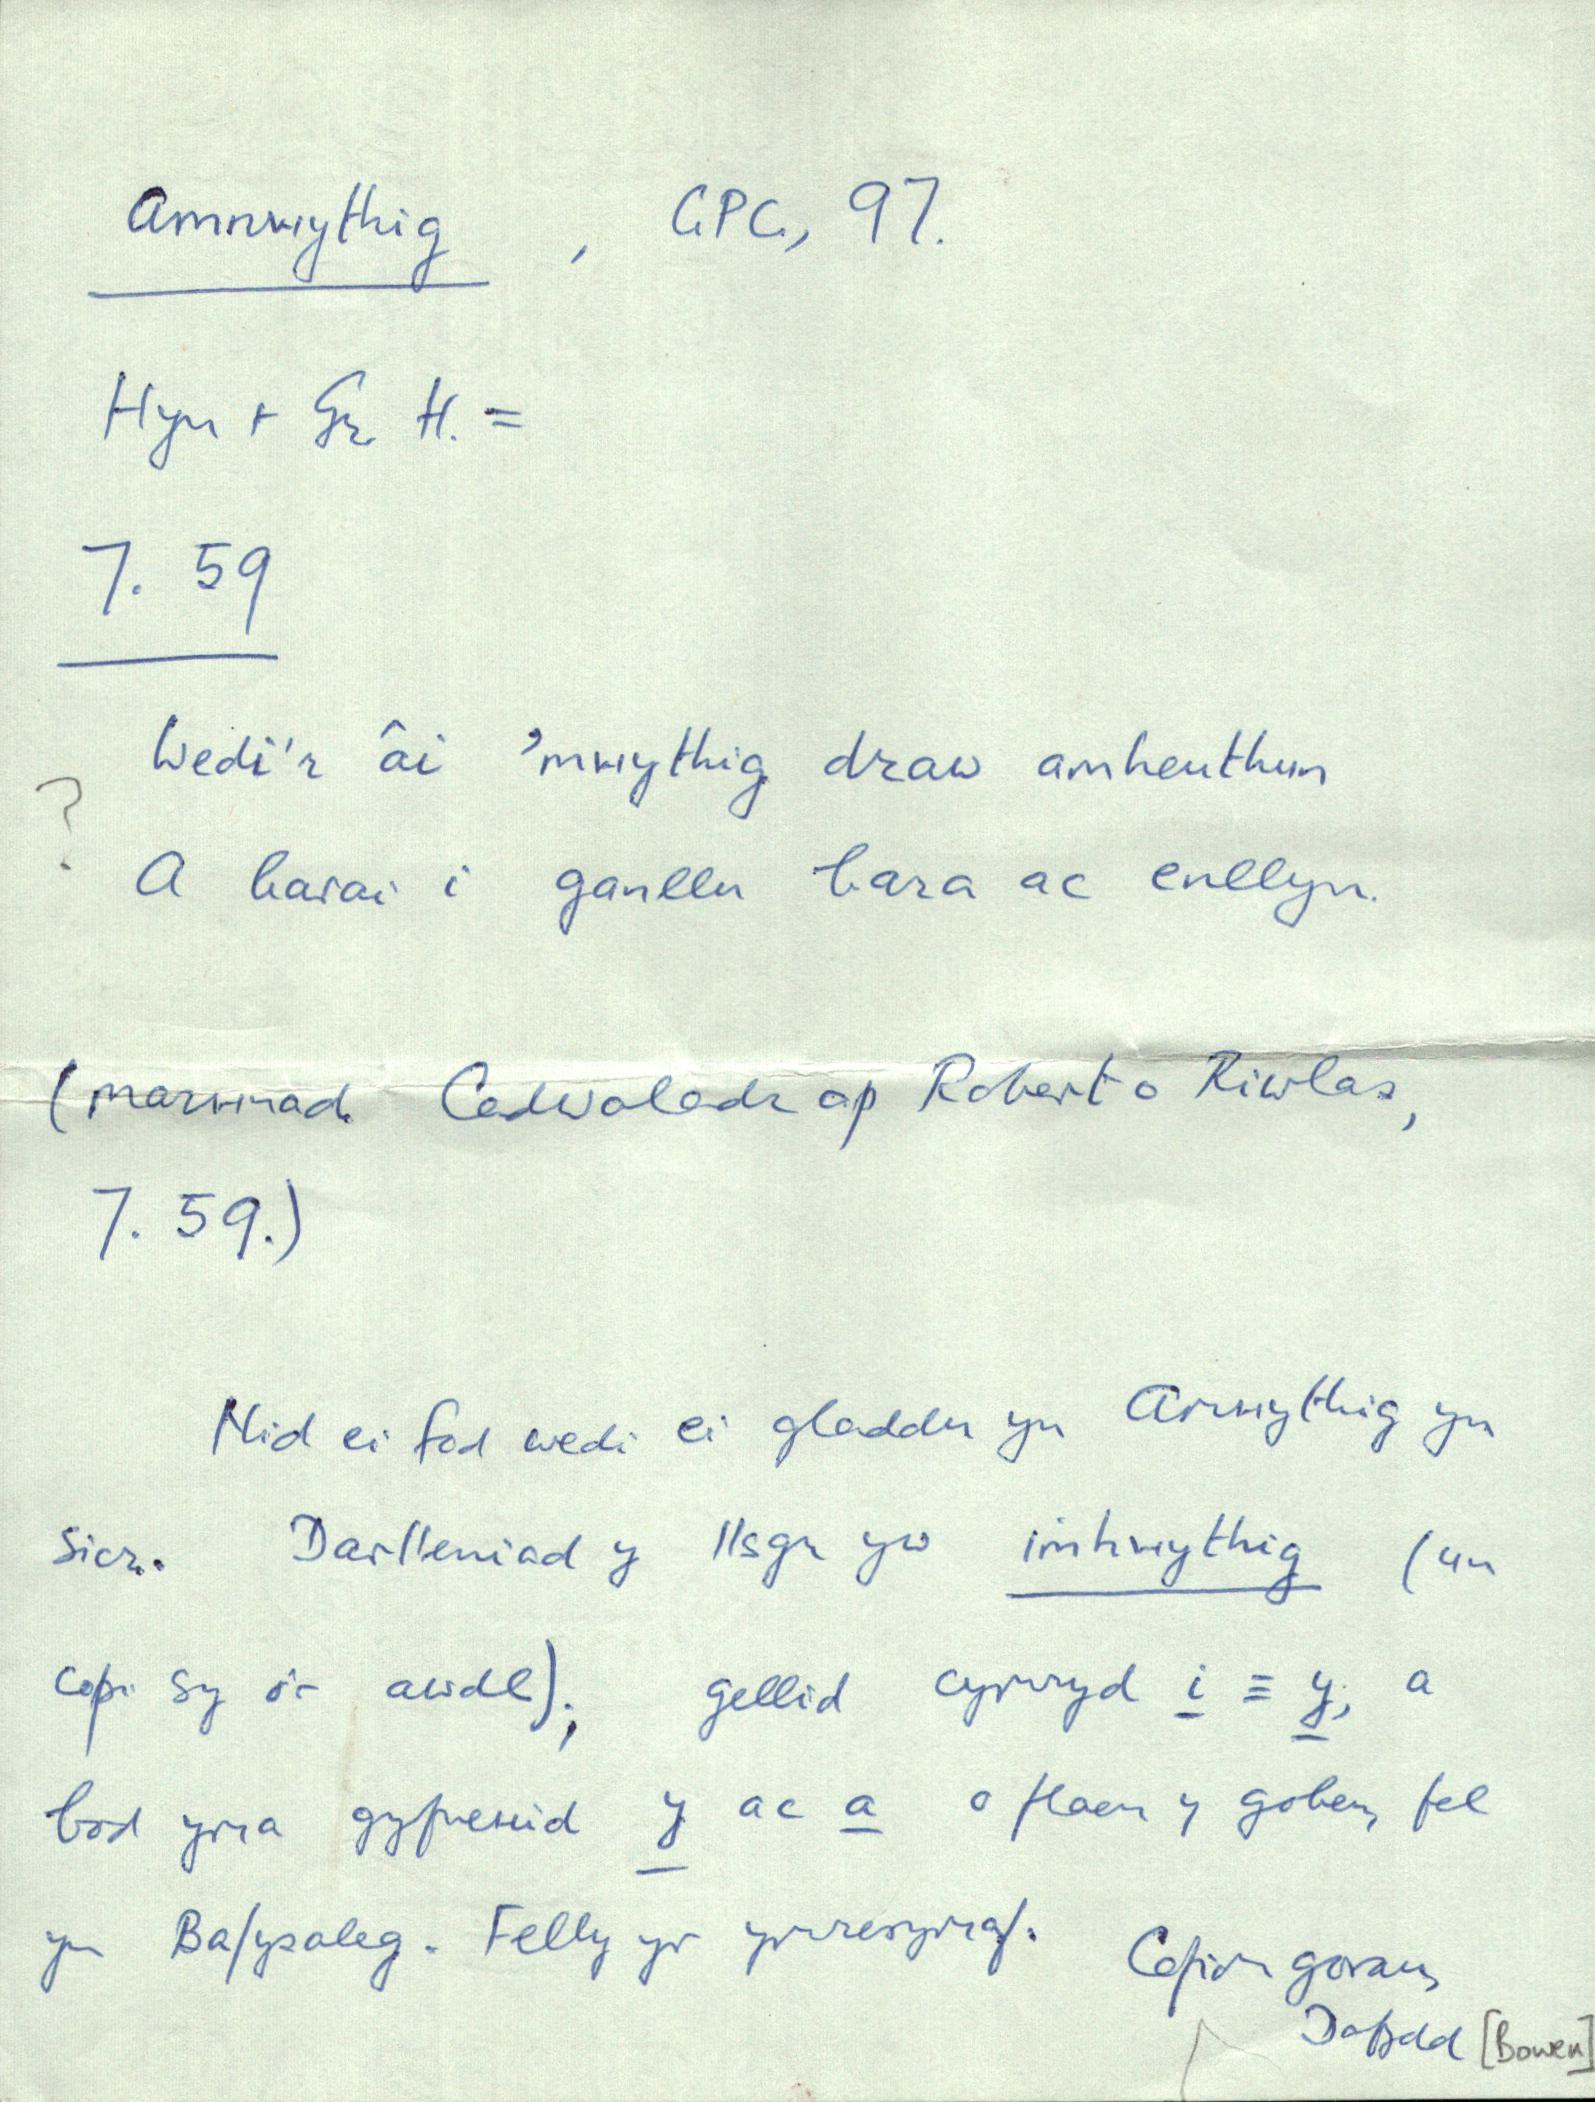 Amnwythig , GPC, 97.
Hyn + Gr H. =
7. 59
Wedi'r âi 'mwythig draw amheuthun
?
A barai i ganllu bara ac enllyn.
(marwnad Cadwaladr ap Robert o Riwlas,
7. 59.)
Nid ei fod wedi ei gladdu yn Amwythig yn
sicr. Darlleniad y llsgr yw imhwythig (un
copi sy o'r awdl); gellid cymryd i ≡ y, a
bod yma gyfnewid y ac a o flaen y goben, fel
yn Basaleg. Felly yr ymresymaf.
Cofion gorau,
Dafydd [Bowen]